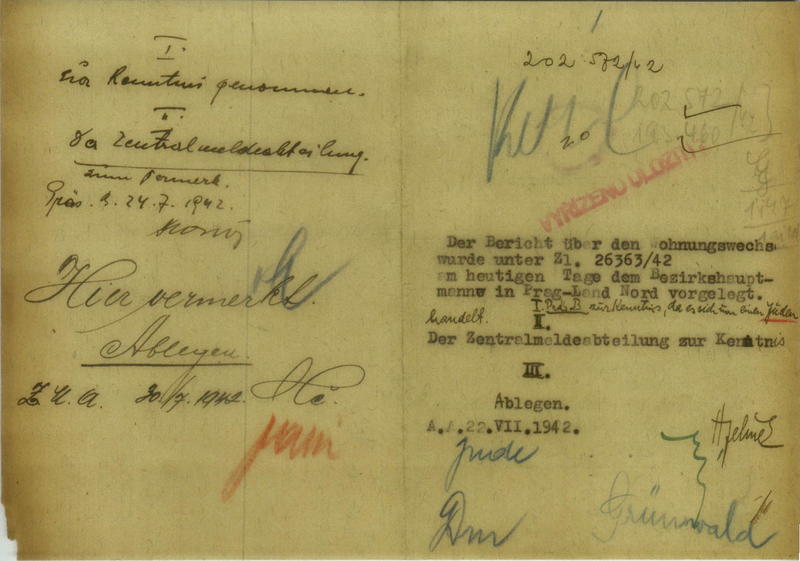 I.
Zur Kenntnis genommen.
II.
Der Zentralmeldeabteilung
zum Vermerk.
Präs. B. 24.7.1942.
Hier vermerkt.
Ablegen.
Z. M. A. 30/7. 1942.
202 572/42
202 572
20
VYŘÍZENO ULOŽIT
1947
Der Bericht über den Wohnungswechs
wurde unter Zl. 26363/42
am heutigen Tage dem Bezirkshaupt-
manne in Prag-Land Nord vorgelegt.
I. Präs. B zur Kenntnis, da es sich um einen Juden
handelt.
II.
Der Zentralmeldeabteilung zur Kenntnis
III.
Ablegen.
A.A.22.VII.1942.
Jude
Grünwald